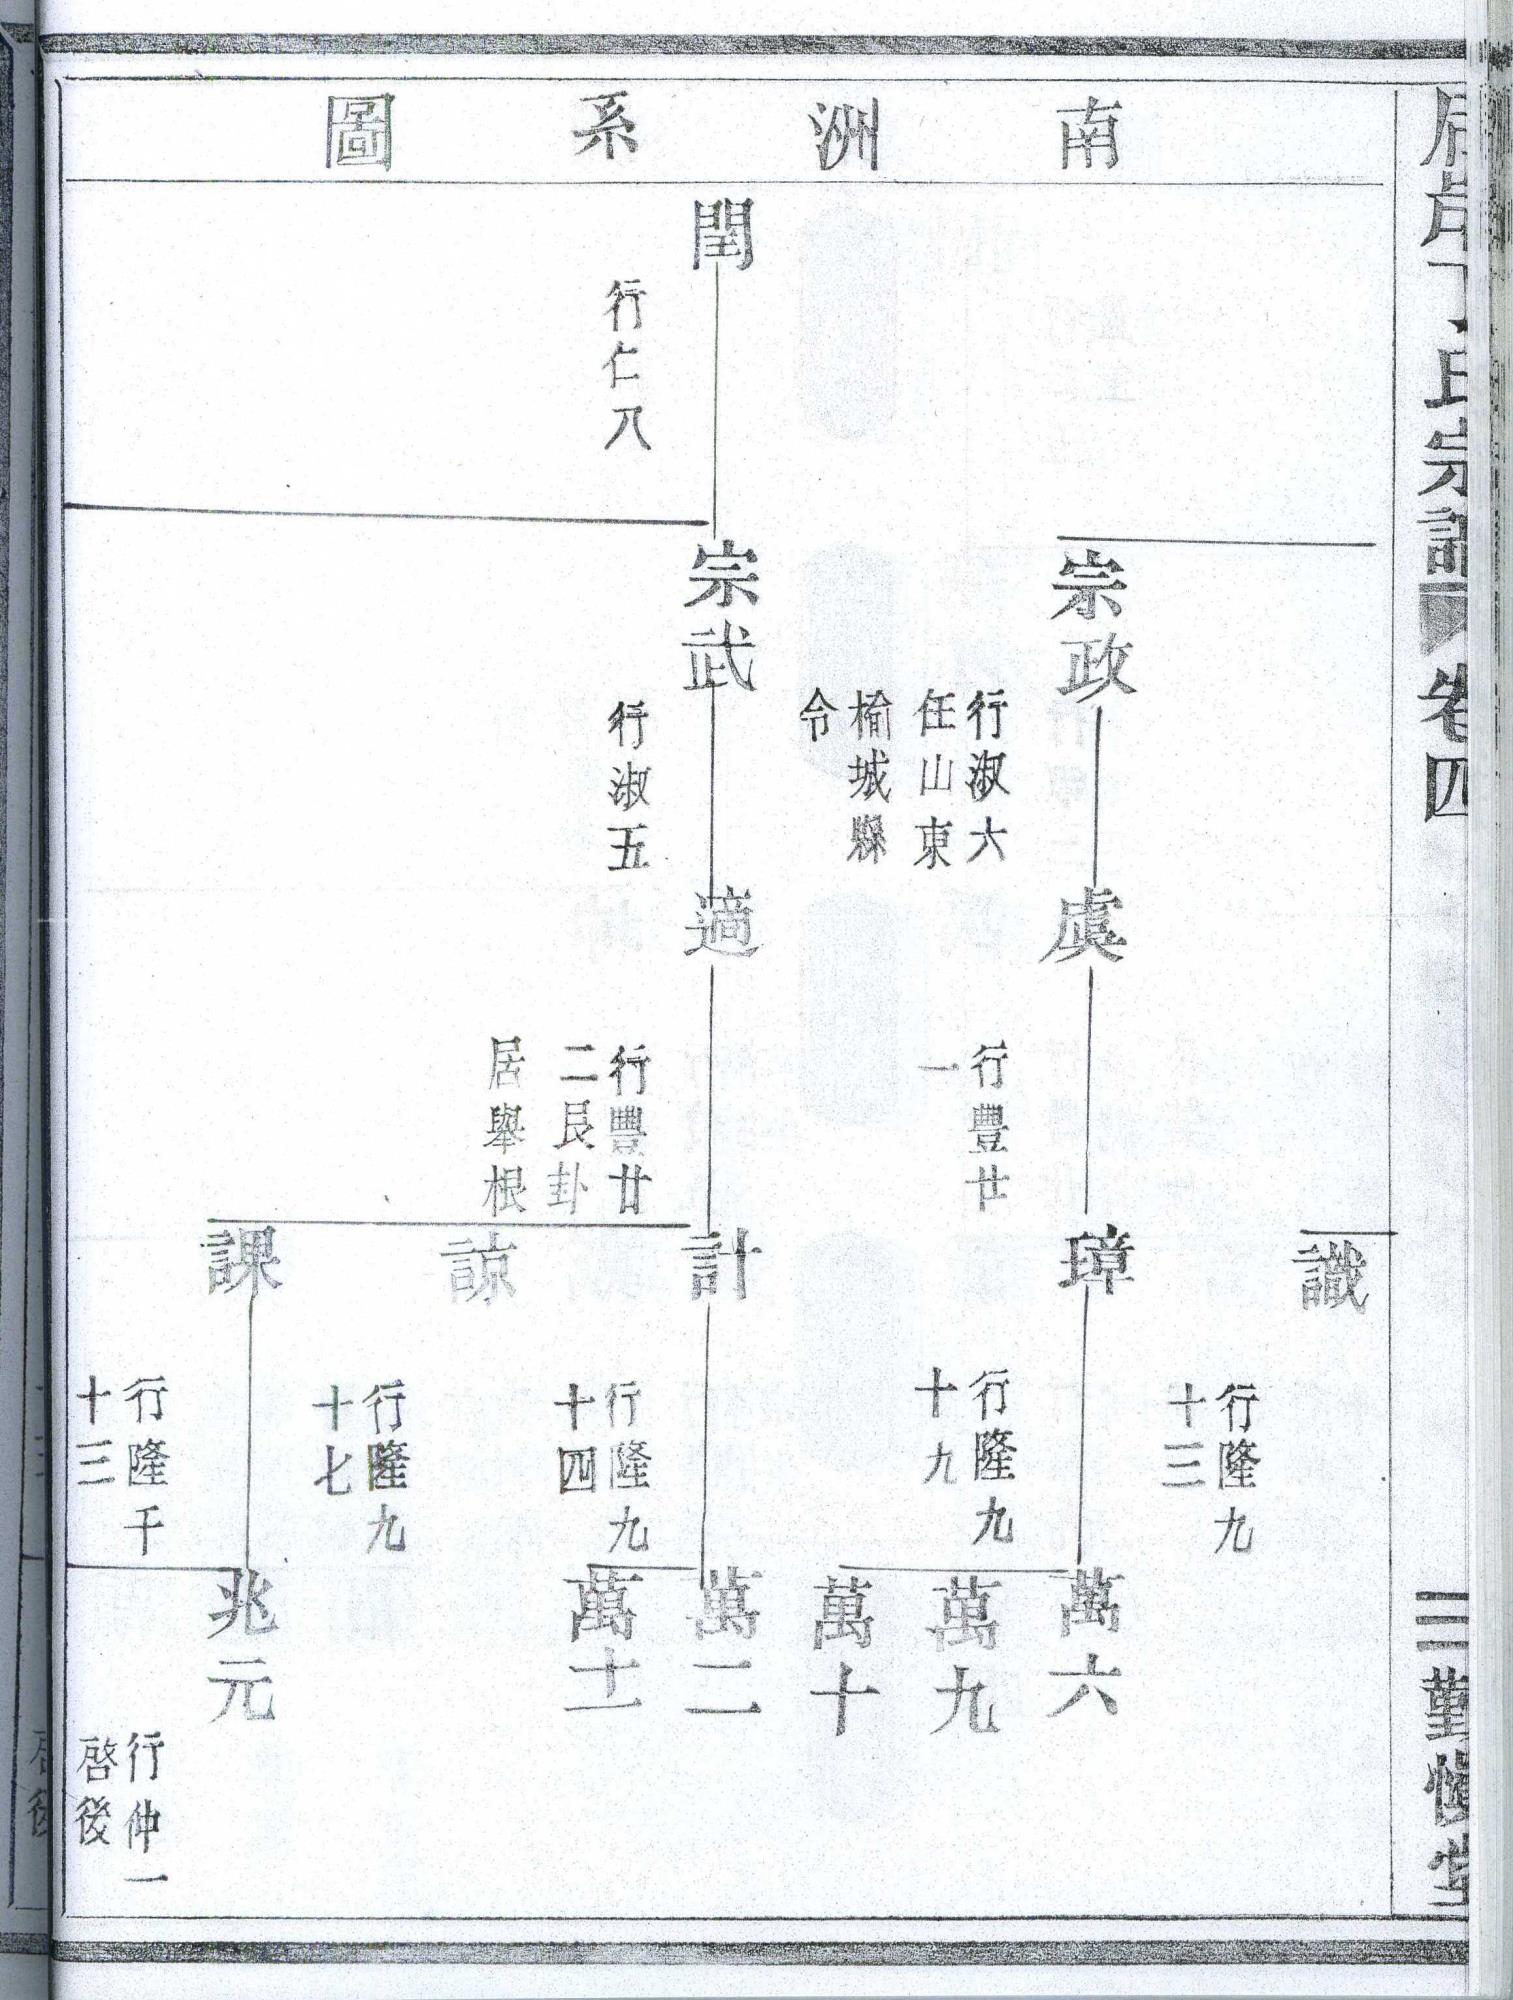 南洲系圖
氏宗譜
卷四
三
勤慎堂
識
行隆九
十三
宗政
行淑六
任山東
榆城縣
令
虞
行豐廿
一
璋
行隆九
十九
萬六
萬九
萬十
閏
行仁八
宗武
行淑五
適
行豐廿
二艮卦
居舉根
計
行隆九
十四
萬二
萬十一
諒
行隆九
十七
課
行隆千
十三
兆元
行仲一
啓後